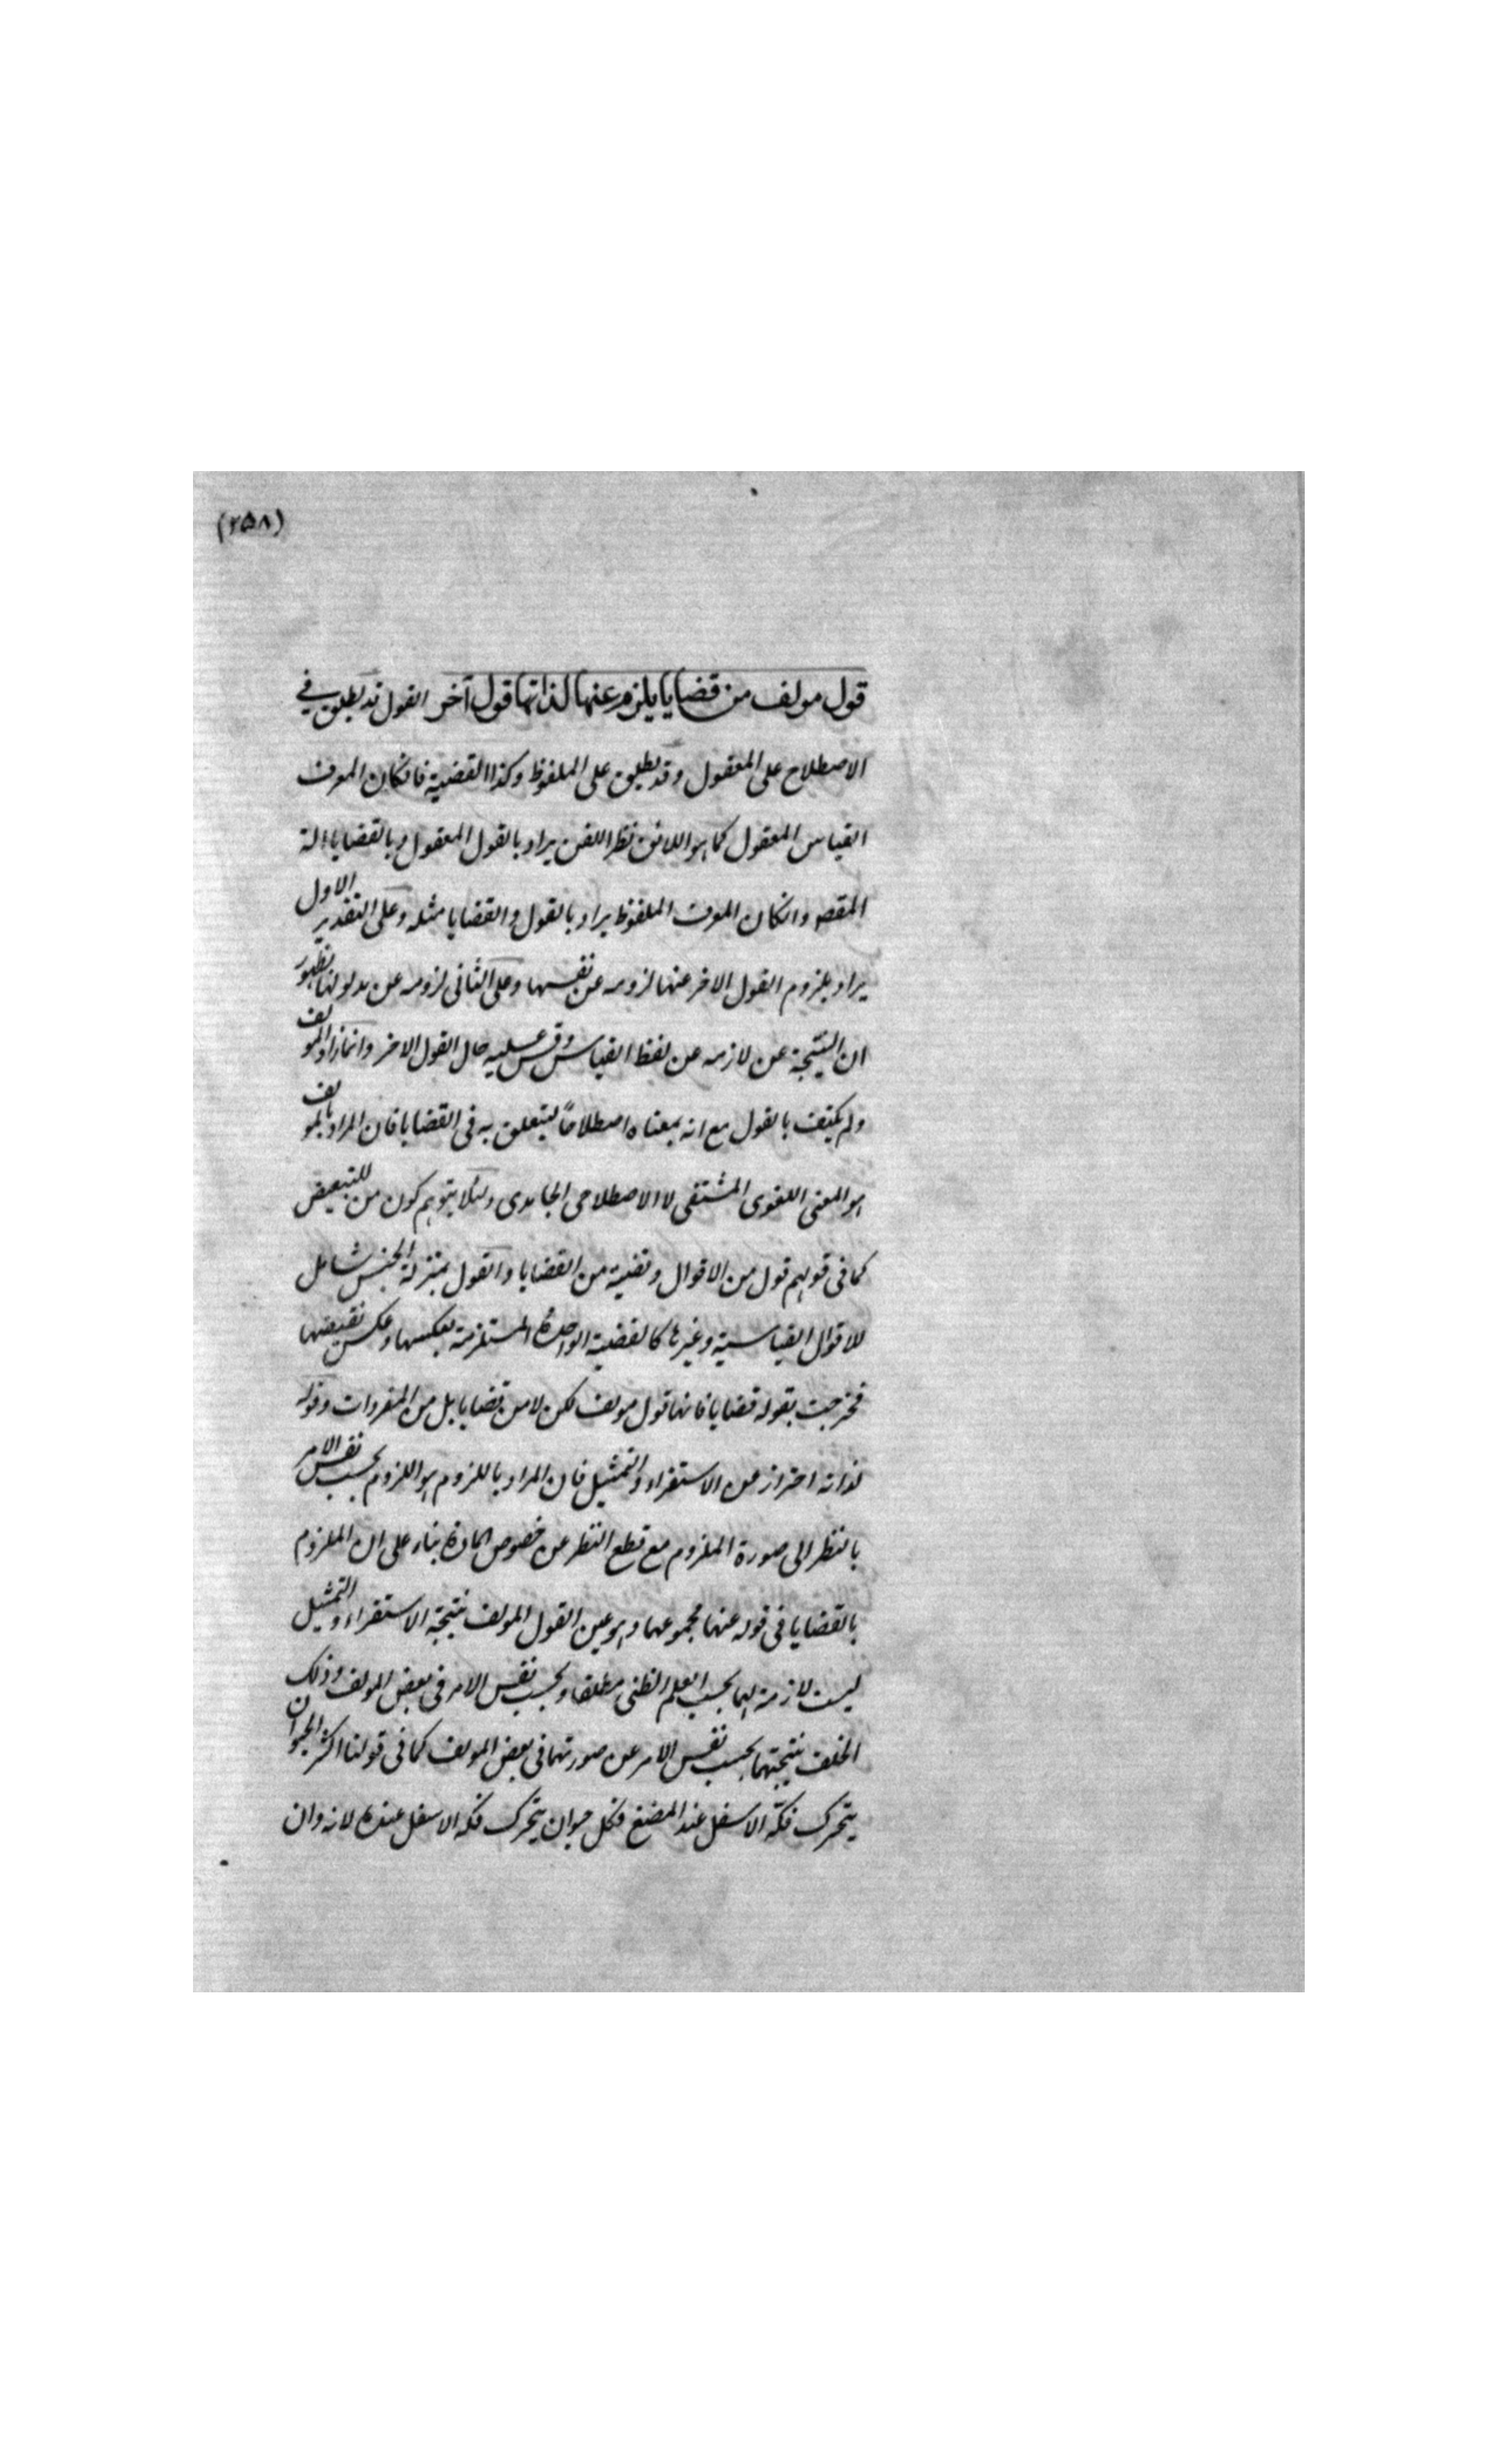 (٢٥٨)
قول مولف من قضايا يلزم عنها لذاتها قول آخر القول قد يطلق في
الاصطلاح على المعقول وقد يطلق على الملفوظ وكذا القضية فانكان المعرف
القياس المعقول كما هو اللائق نظرا للفن يراد بالقول المعقول وبالقضايا
المقصه وانكان المعرف الملفوظ يراد بالقول والقضايا مثله وعلى التقدير الاول
يراد بلزوم القول الاخر عنها لزومه عن نفسها وعلى الثانى لزومه عن مدلولها لظهور
ان النتيجة عن لازمه عن لفظ القياس وقس عليه حال القول الاخر وانما زاد المولف
ولم يكتف بالقول مع انه بمعناه اصطلاحاً ليتعلق به فى القضايا فان المراد بالمولف
هو المعنى اللغوى المشتقى لا الاصطلاحى الجامدى ولئلا يتوهم كون من للتبعيض
كما فى قولهم قول من الاقوال وقضية من القضايا والقول بمنزلة الجنس شامل
للاقوال القياسية وغيرها كالقضية الواحدة المستلزمة لعكسها وعكس نقيضها
فخرجت بقوله قضايا فانها قول مولف لكن لا من قضايا بل من المفردات وقوله
لذاته احتراز عن الاستقراء والتمثيل فان المراد باللزوم هو اللزوم بحسب نفس الامر
بالنظر الى صورة الملزوم مع قطع النظر عن خصوص المادة بناء على ان الملزوم
بالقضايا فى قوله عنها مجموعها وهو عين القول المولف نتيجة الاستقراء والتمثيل
ليست لازمة لهما بحسب العلم الظنى مطلقا وبحسب نفس الامر فى بعض المولف وذلك
الخلف نتيجتهما بحسب نفس الامر عن صورتهما فى بعض المولف كما فى قولنا اكثر الحيوان
يتحرك فكّه الاسفل عند المضغ فكل حيوان يتحرك فكه الاسفل عنده لانه وان